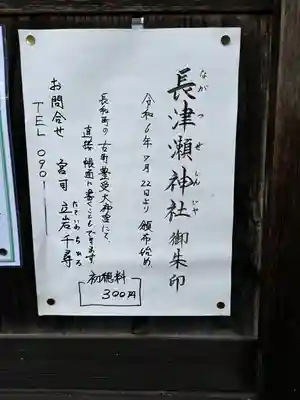 長津瀬神社御朱印
ながつせじんじゃ
令和6年7月22日より頒布始め
長和町の古町豊受大神宮にて、
直接帳面に書くこともできます
初穂料
300円
お問合せ 宮司 立岩千尋
たていわちひろ
TEL 090